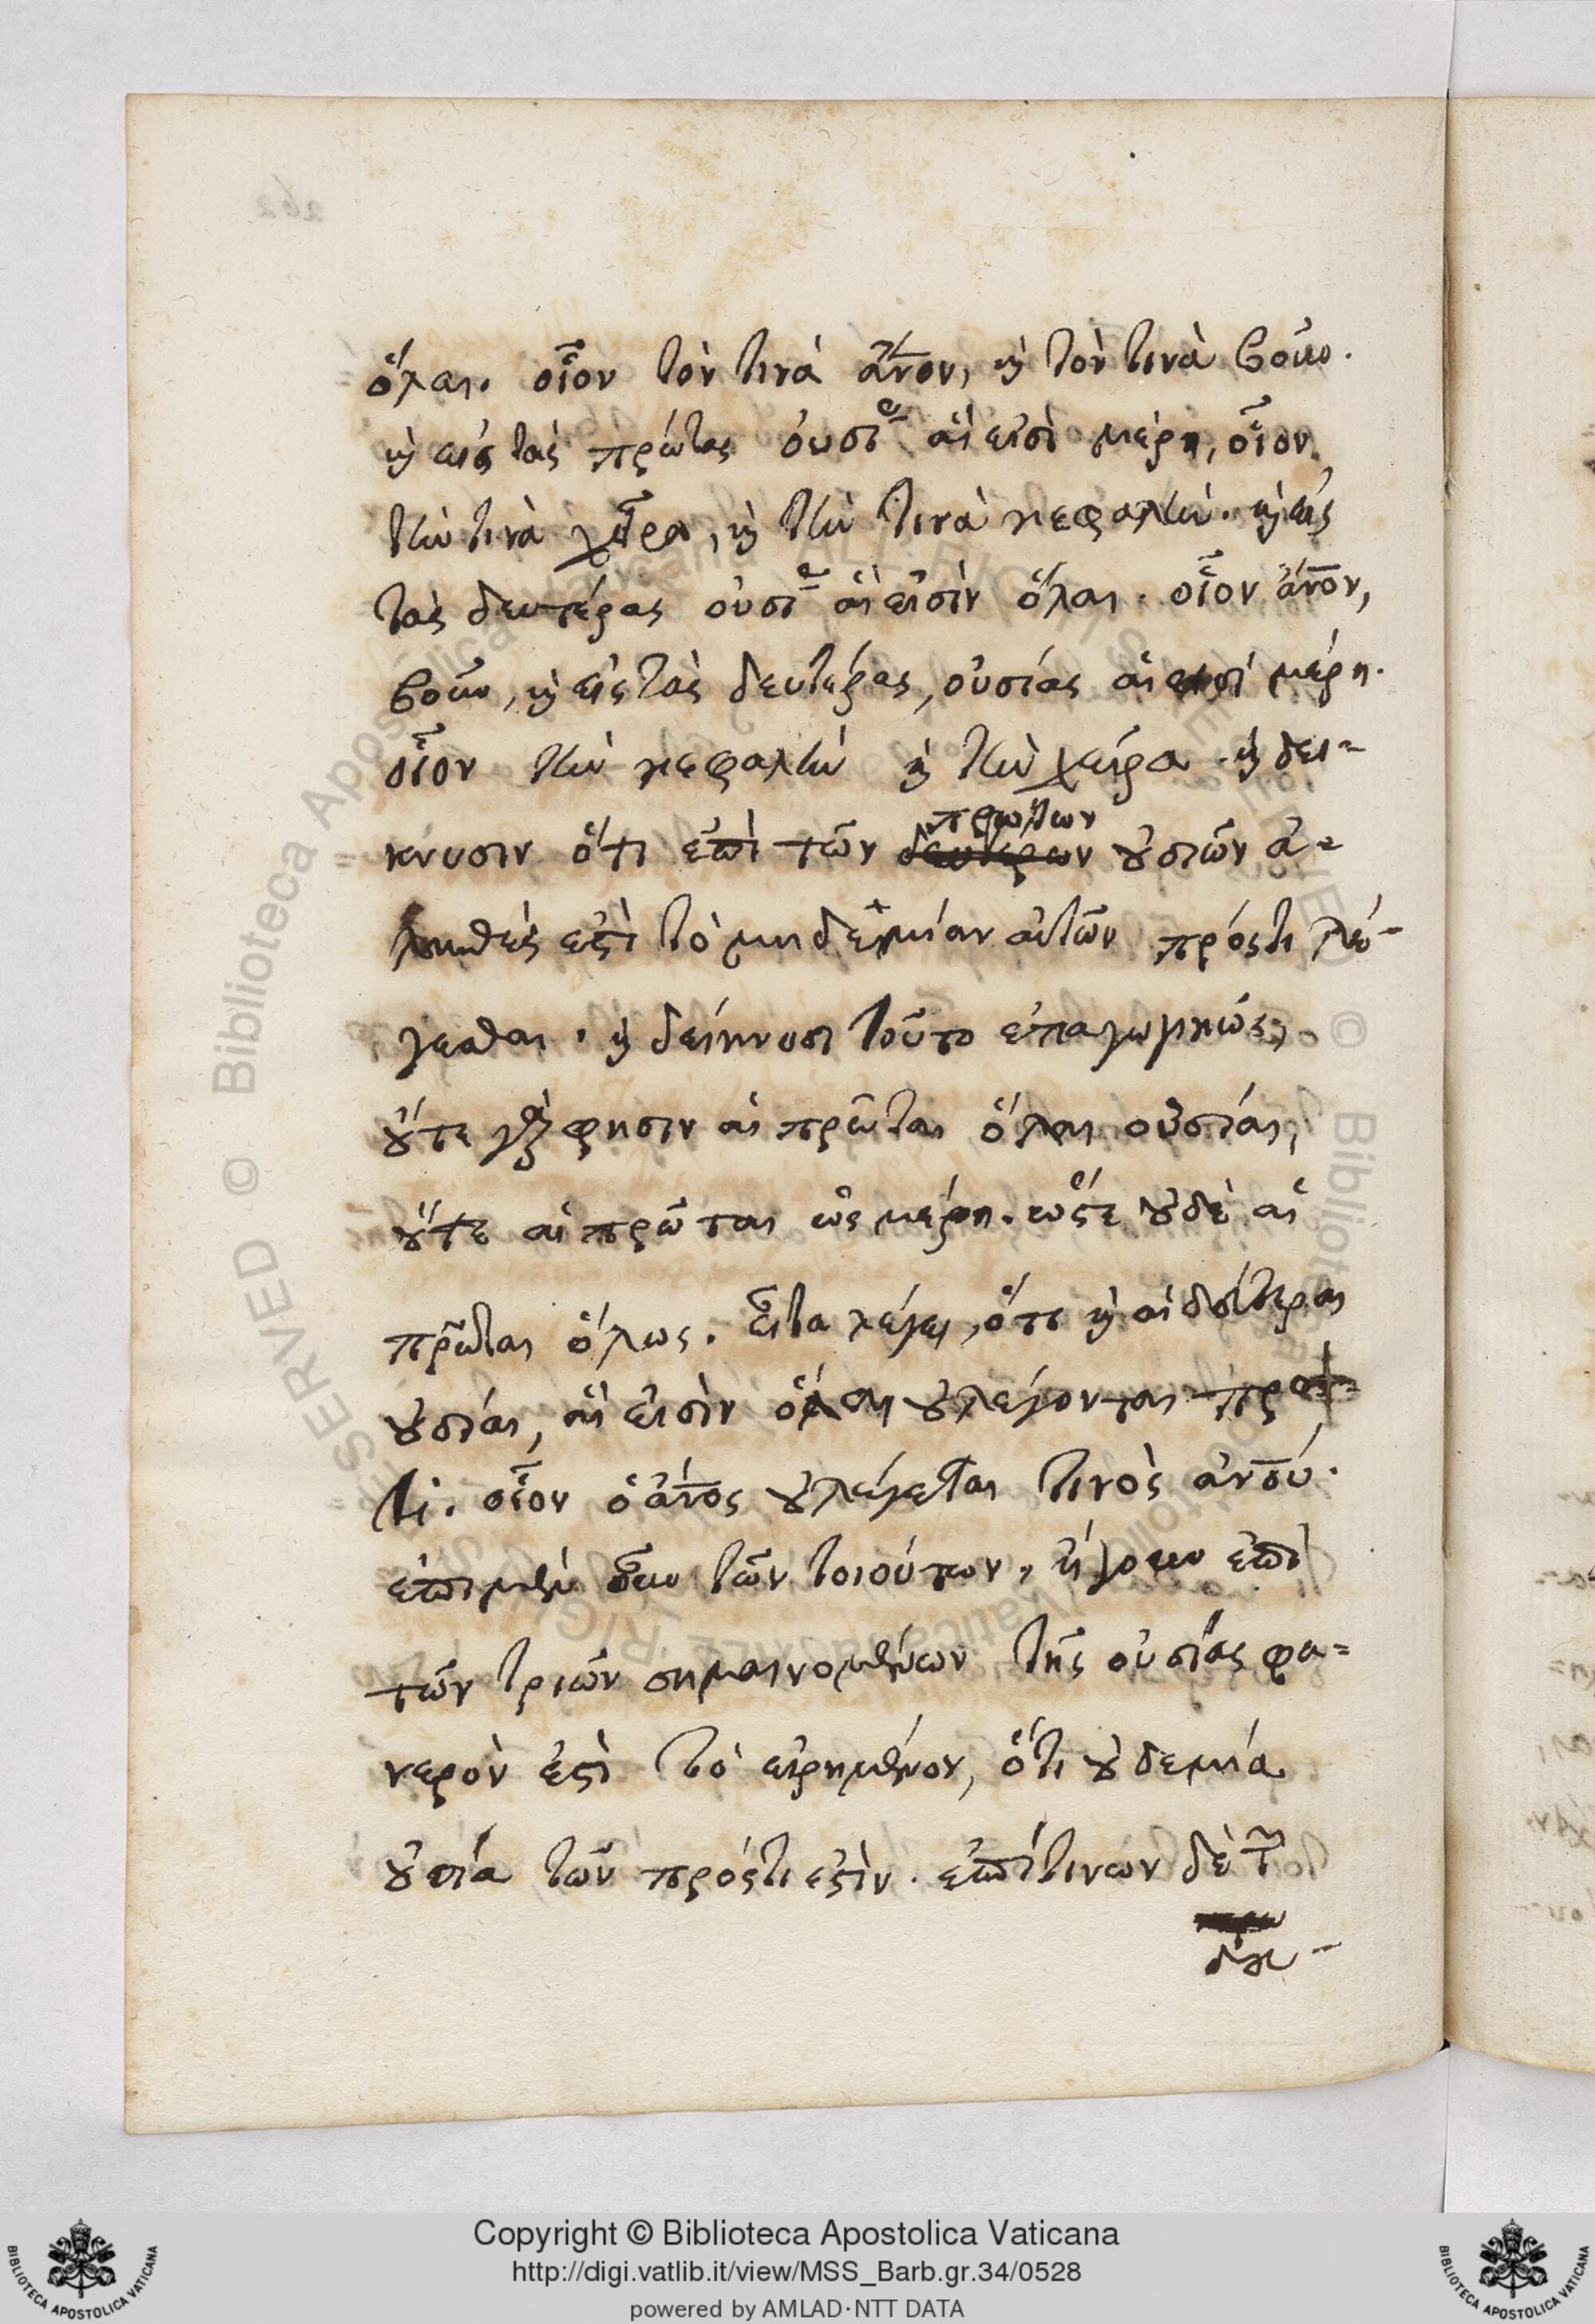 ὅλαι. οἷον τὸν τινὰ ἄνον, ϗ τὸν τινὰ βοῦν.
ϗ εἰς τὰς πρώτας οὐσί αἵ εἰσὶ μέρη, οἷον
τὴν τινὰ χεῖρα, ϗ τὴν τινὰ κεφαλήν. ϗ εἰς
τὰς δευτέρας οὐσί αἵ εἰσὶν ὅλαι. οἷον ἄνον,
βοῦν, ϗ εἰς τὰς δευτέρας, οὐσίας αἵ εἰσί μέρη.
οἷον τὴν κεφαλὴν ϗ τὴν χεῖρα. ϗ δει=
πρώτων
κνυσιν ὅτι ἐπὶ τῶν δευτέρων ȣσιῶν ἀ=
ληθές ἐϛὶ τὸ μηδεμίαν αὐτῶν πρόςτι λέ-
γεσθαι. ϗ δείκνυσι τοῦτο ἐπαγωγικῶς,
ȣ́τε γὰρ φησιν αἱ πρῶται ὅλαι οὐσίαι,
ȣ́τε αἱ πρῶται ὡς μέρη. ὥϛε ȣδὲ αἱ
πρῶται ὅλως. Εἶτα λέγει, ὅτι ϗ αἱ δεύτεραι
ȣσίαι, αἵ εἰσὶν ὅλαι ȣ λέγονται πρός
τι. οἷον ὁ ἄνος ȣ λέγεται τινὸς ἀνου.
ἐπὶ μὲν οὖν τῶν τοιούτων, ἤγουν ἐπὶ
τῶν τριῶν σημαινομένων τῆς οὐσίας φα=
νερὸν ἐϛὶ τὸ εἰρημένον, ὅτι ȣδεμία
ȣσία τῶν πρόςτι ἐϛὶν. ἐπί τινων δὲ τ̃
Copyright © Biblioteca Apostolica Vaticana
http://digi.vatlib.it/view/MSS_Barb.gr.34/0528
powered by AMLAD·NTT DATA